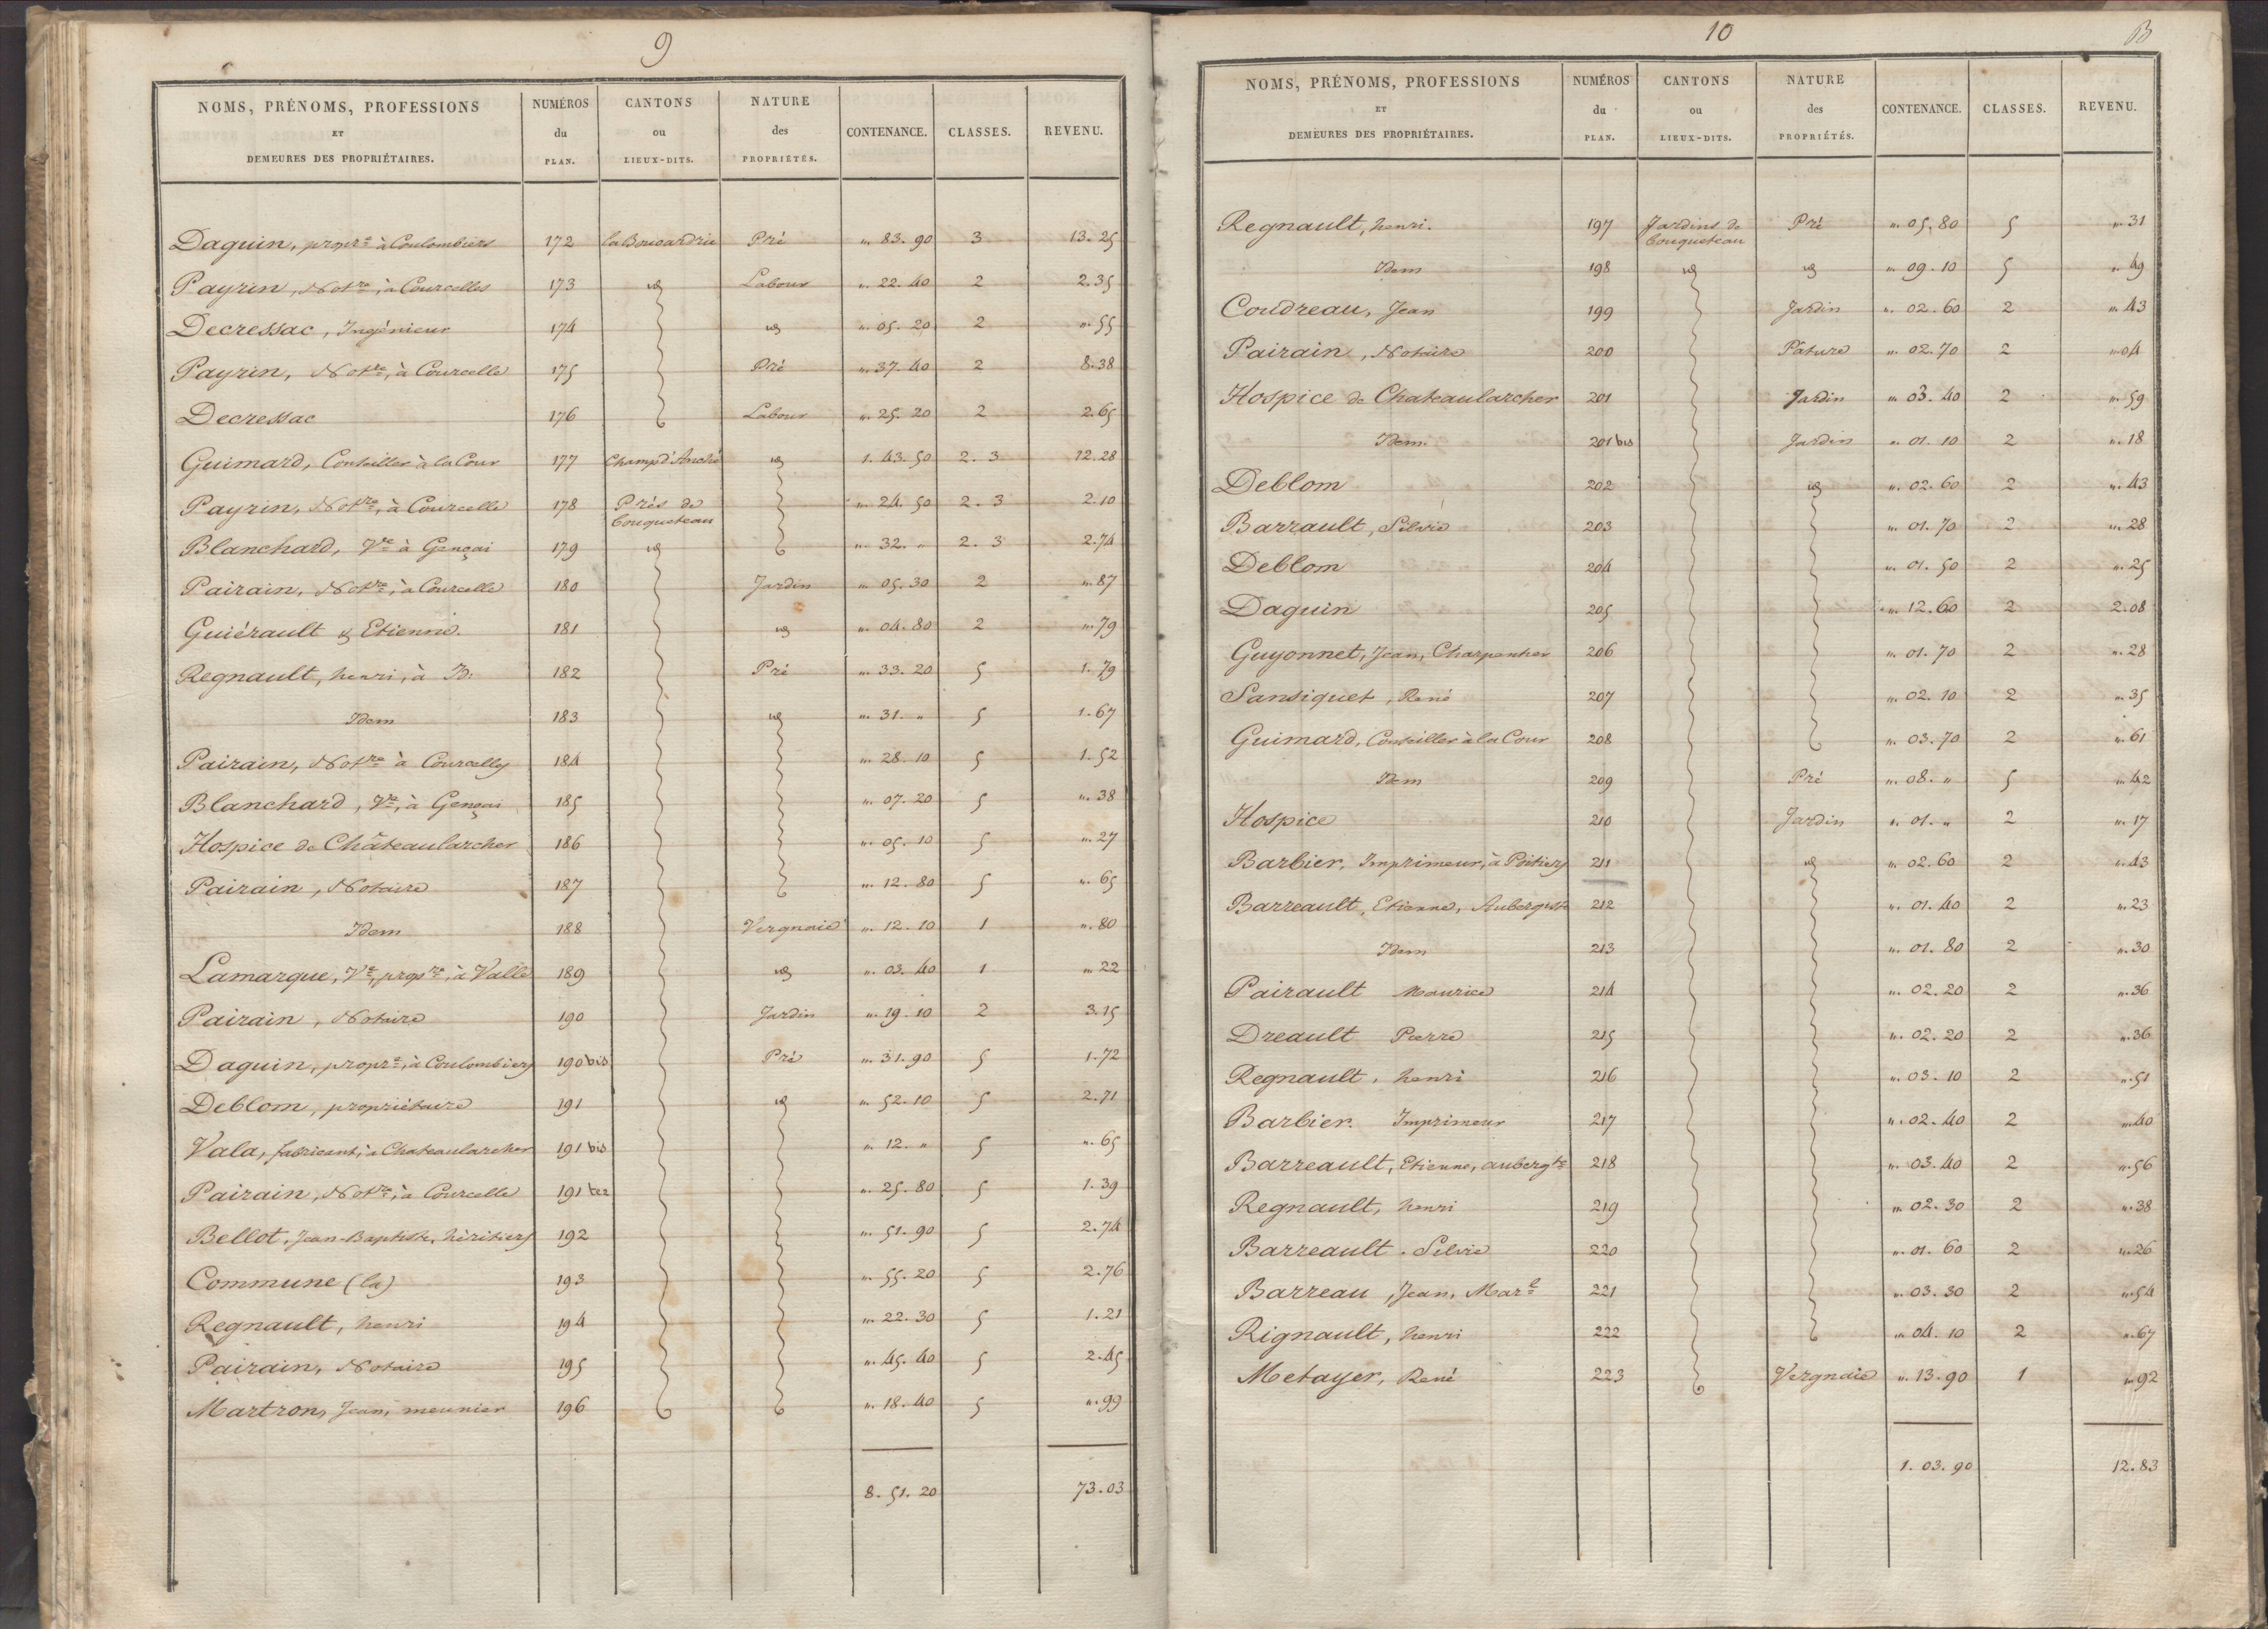 9
NOMS, PRÉNOMS, PROFESSIONS ET DEMEURES DES PROPRIÉTAIRES. NUMÉROS du PLAN. CANTONS ou LIEUX-DITS. NATURE des PROPRIÉTÉS. CONTENANCE. CLASSES. REVENU.
Daguin, propre à Coulombiers 172 Pré „. 83. 90 3 13. 25
Payrin, Notre, à Courcelles 173 id Labour „. 22. 40 2 2. 35
Decressac, Ingénieur 174 id „. 05. 20 2 „. 55
Payrin, Notre, à Courcelle 175 Pré „. 37. 40 2 8. 38
Decressac 176 Labour „. 25. 20 2 2. 65
Guimard, Conseiller à la Cour 177 Champ d'Anché id 1. 43. 50 2. 3 12. 28
Payrin, Notre, à Courcelle 178 Prés de Couqueteau „. 24. 50 2. 3 2. 10
Blanchard, Ve à Gençai 179 id „. 32. „ 2. 3 2. 74
Pairain, Notre, à Courcelle 180 Jardin „. 05. 30 2 „. 87
Guiérault & Etienne. 181 id „. 04. 80 2 „. 79
Regnault, henri, à 182 Pré „. 33. 20 5 1. 79
Idem 183 id „. 31. „ 5 1. 67
Pairain, Notre à Courcelles 184 „. 28. 10 5 1. 52
Blanchard, Ve, à Gençai 185 „. 07. 20 5 „. 38
Hospice de Châteaularcher 186 „. 05. 10 5 „. 27
Pairain, Notaire 187 „. 12. 80 5 „. 65
Idem 188 Vergnaie „. 12. 10 1 „. 80
Lamarque, Ve, propre, à Valle 189 id „. 03. 40 1 „. 22
Pairain, Notaire 190 Jardin „. 19. 10 2 3. 15
Daguin, propre, à Coulombiers 190 bis Pré „. 31. 90 5 1. 72
Deblom, propriétaire 191 id „. 52. 10 5 2. 71
Vala, fabricant, à Chateaularcher 191 bis „. 12. „ 5 „. 65
Pairain, Notre, à Courcelle 191 ter „. 25. 80 5 1. 39
Bellot, Jean-Baptiste, héritiers 192 „. 51. 90 5 2. 74
Commune (la) 193 „. 55. 20 5 2. 76
Regnault, henri 194 „. 22. 30 5 1. 21
Pairain, Notaire 195 „. 45. 40 5 2. 45
Martron, Jean, meunier 196 „. 18. 40 5 „. 99
8. 51. 20 73. 03
10
B
NOMS, PRÉNOMS, PROFESSIONS ET DEMEURES DES PROPRIÉTAIRES. NUMÉROS du PLAN. CANTONS ou LIEUX-DITS. NATURE des PROPRIÉTÉS. CONTENANCE. CLASSES. REVENU.
Regnault, henri. 197 Jardins de Couqueteau Pré „. 05. 80 5 „. 31
Idem 198 id id „. 09. 10 5 „. 49
Coudreau, Jean 199 Jardin „. 02. 60 2 „. 43
Pairain, Notaire 200 Pâture „. 02. 70 2 „. 04
Hospice de Chateaularcher 201 Jardin „. 03. 40 2 „. 59
Idem. 201 bis Jardin „. 01. 10 2 „. 18
Deblom 202 id „. 02. 60 2 „. 43
Barrault, Silvie 203 „. 01. 70 2 „. 28
Deblom 204 „. 01. 50 2 „. 25
Daguin 205 „. 12. 60 2 2. 08
Guyonnet, Jean, Charpentier 206 „. 01. 70 2 „. 28
Sansiquet, René 207 „. 02. 10 2 „. 35
Guimard, Conseiller à la Cour 208 „. 03. 70 2 „. 61
Idem 209 Pré „. 08. „ 5 „. 42
Hospice 210 Jardin „. 01. „ 2 „. 17
Barbier, Imprimeur, à Poitiers 211 id „. 02. 60 2 „. 43
Barreault, Etienne, Aubergiste 212 „. 01. 40 2 „. 23
Idem 213 „. 01. 80 2 „. 30
Pairault Maurice 214 „. 02. 20 2 „. 36
Dreault Pierre 215 „. 02. 20 2 „. 36
Regnault, henri 216 „. 03. 10 2 „. 51
Barbier. Imprimeur 217 „. 02. 40 2 „. 40
Barreault, Etienne, aubergte 218 „. 03. 40 2 „. 56
Regnault, henri 219 „. 02. 30 2 „. 38
Barreault. Silvie 220 „. 01. 60 2 „. 26
Barreau, Jean, Marl 221 „. 03. 30 2 „. 54
Rignault, henri 222 „. 04. 10 2 „. 67
Metayer, René 223 Vergnaie „. 13. 90 1 „. 92
1. 03. 90 12. 83